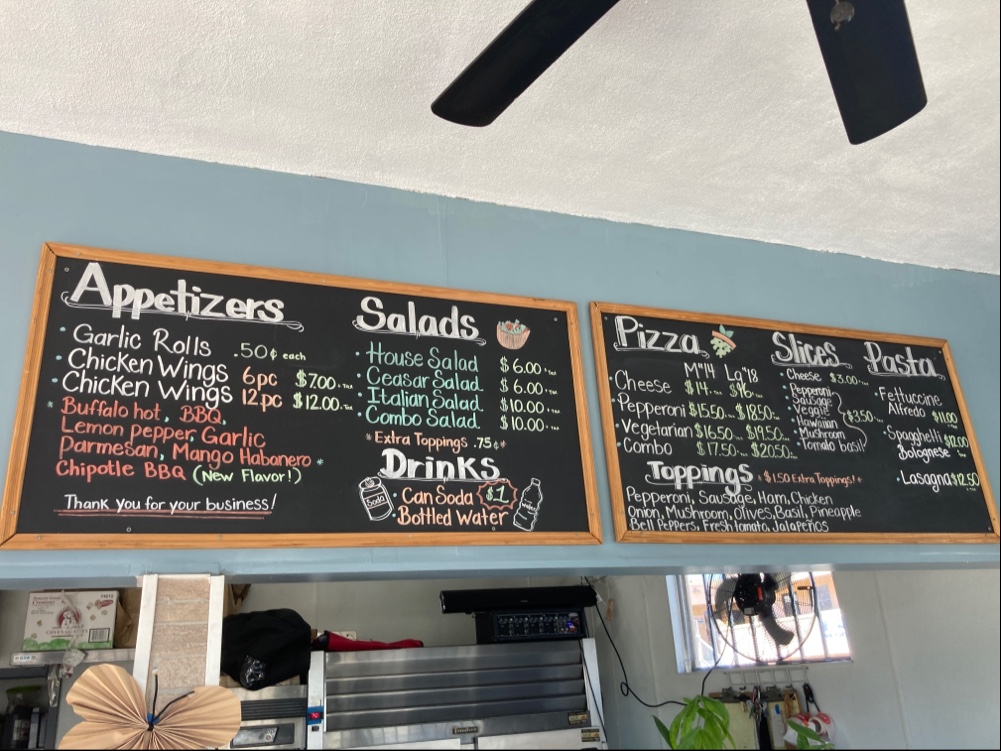 Appetizers
Garlic Rolls .50¢ each
Chicken Wings 6pc $7.00
Chicken Wings 12pc $12.00
Buffalo hot, BBQ,
Lemon pepper, Garlic
Parmesan, Mango Habanero
Chipotle BBQ (New Flavor!)
Thank you for your business!
Salads
House Salad $6.00
Ceasar Salad $6.00
Italian Salad $10.00
Combo Salad $10.00
*Extra Toppings .75¢*
Drinks
Soda
Can Soda $1
Bottled Water
Pizza
M"14 La"18
Cheese $14 $16
Pepperoni $15.50 $18.50
Vegetarian $16.50 $19.50
Combo $17.50 $20.50
Slices
Cheese $3.00
Pepperoni
Sausage
Veggie
Hawaiian $3.50
Mushroom
Tomato basil
Pasta
Fettuccine
Alfredo $11.00
Spaghetti $12.00
Bolognese
Lasagna $12.50
Toppings
$1.50 Extra Toppings!
Pepperoni, Sausage, Ham, Chicken
Onion, Mushroom, Olives, Basil, Pineapple
Bell Peppers, Fresh tomato, Jalapeños